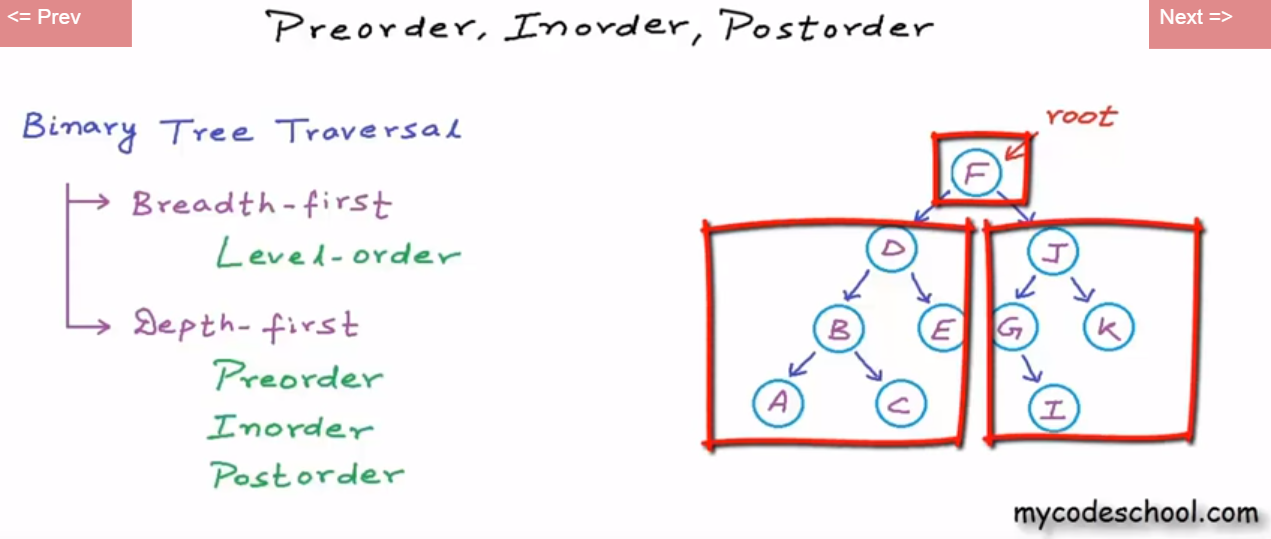 <= Prev
Next =>
Preorder, Inorder, Postorder
Binary Tree Traversal
Breadth-first
Level-order
Depth-first
Preorder
Inorder
Postorder
root
F
D J
B E G K
A C I
mycodeschool.com